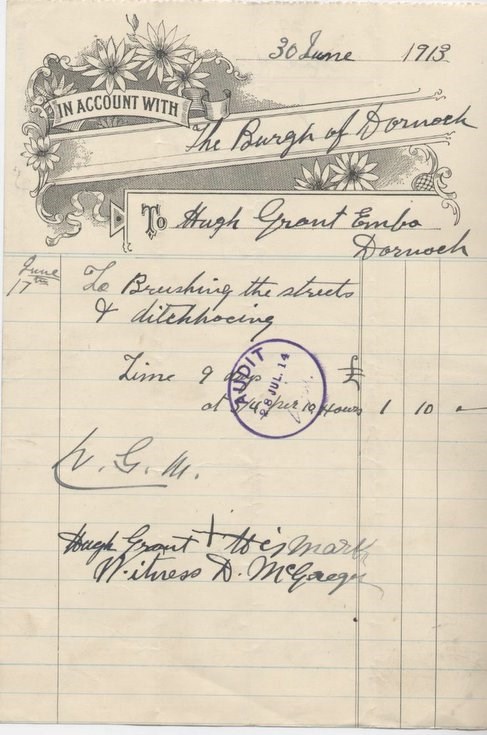 30 June 1913
IN ACCOUNT WITH
The Burgh of Dornoch
To Hugh Grant Embo
Dornoch
June
17th
To Brushing the streets
& ditchhocing
Time 9 days £
at 3/4 per 10 Hours 1 10 -
AUDIT
28 JUL. 14
W. G. M.
Hugh Grant + His mark
Witness D. McGregor